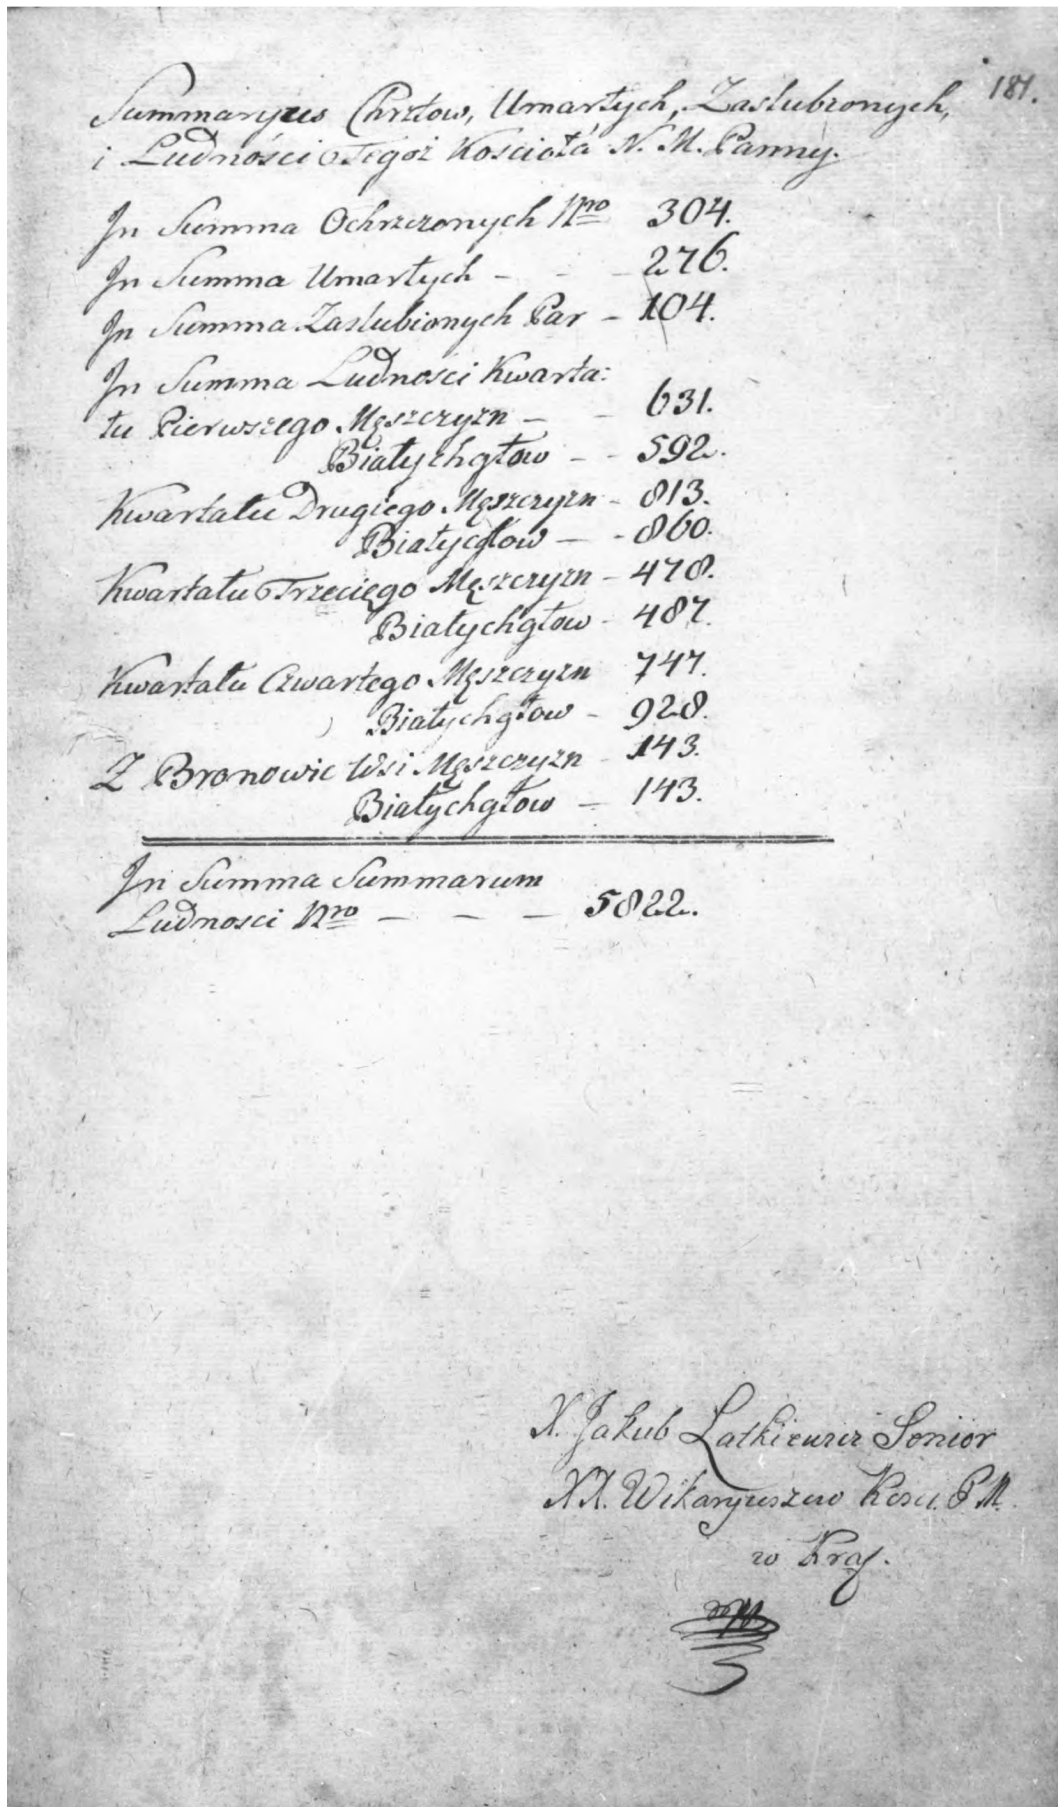 181.
Summaryus Chrztow, Umarłych, Zaslubzonych,
i Ludności Tegoż Kościoła N. M. Panny.
In Summa Ochrzczonych Nro 304.
In Summa Umarłych - - - 276.
In Summa Zaslubionych Par - 104.
In Summa Ludności Kwarta:
łu Pierwszego Męszczyzn - - 631.
Białychgłow - - 592.
Kwartału Drugiego Męszczyzn - 813.
Białycgłow - - 860.
Kwartału Trzeciego Męszczyzn - 478.
Białychgłow - 487.
Kwartału Czwartego Męszczyzn 747.
Białychgłow - 928.
Z Bronowic Wsi Męszczyzn - 143.
Białychgłow - 143.
In Summa Summarum
Ludnosci Nro - - - 5822.
X. Jakub Latkiewicz Senior
XX. Wikaryuszow Kosci. P. M.
w Kra.